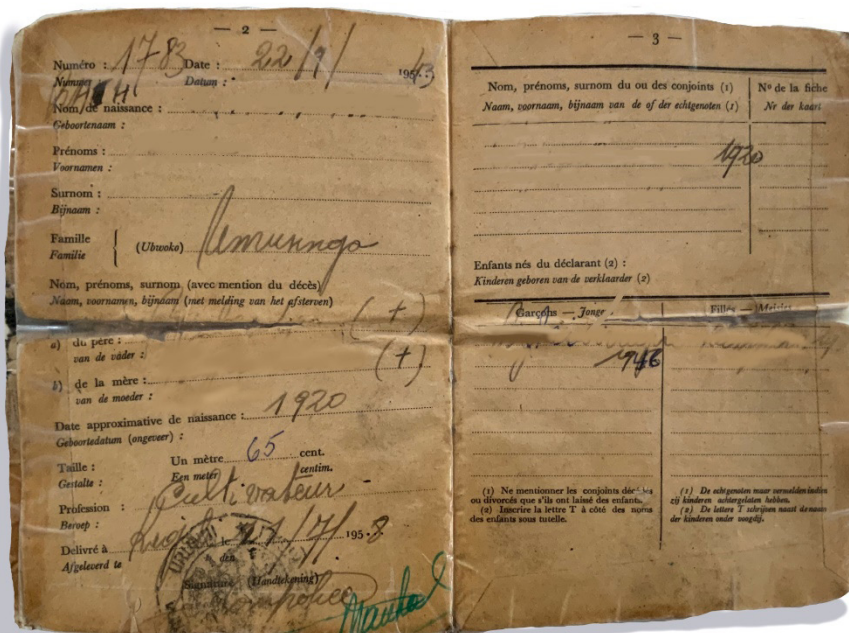 — 2 —
Numéro : 1783 Date : 22/9/ 195..43
Nummer Datum :
Nom de naissance :
Geboortenaam :
Prénoms :
Voornamen :
Surnom :
Bijnaam :
Famille
Familie { (Ubwoko) Umusinga
Nom, prénoms, surnom (avec mention du décès)
Naam, voornamen, bijnaam (met melding van het afsterven)
(+)
a) du père :
van de vader :
(+)
b) de la mère :
van de moeder :
Date approximative de naissance : 1920
Geboortedatum (ongeveer) :
Taille : Un mètre 65 cent.
Gestalte : Een meter centim.
Profession : Cultivateur
Beroep :
Delivré à le 21/7/ 1958
Afgeleverd te den
Signature (Handtekening)
— 3 —
Nom, prénoms, surnom du ou des conjoints (1) Nº de la fiche
Naam, voornaam, bijnaam van de of der echtgenoten (1) Nr der kaart
1920
Enfants nés du déclarant (2) :
Kinderen geboren van de verklaarder (2)
Garçons — Jonge Filles — Meisjes
1946
(1) Ne mentionner les conjoints décédés
ou divorcés que s'ils ont laissé des enfants.
(2) Inscrire la lettre T à côté des noms
des enfants sous tutelle.
(1) De echtgenoten maar vermelden indien
zij kinderen achtergelaten hebben.
(2) De lettere T schrijven naast de naam
der kinderen onder voogdij.